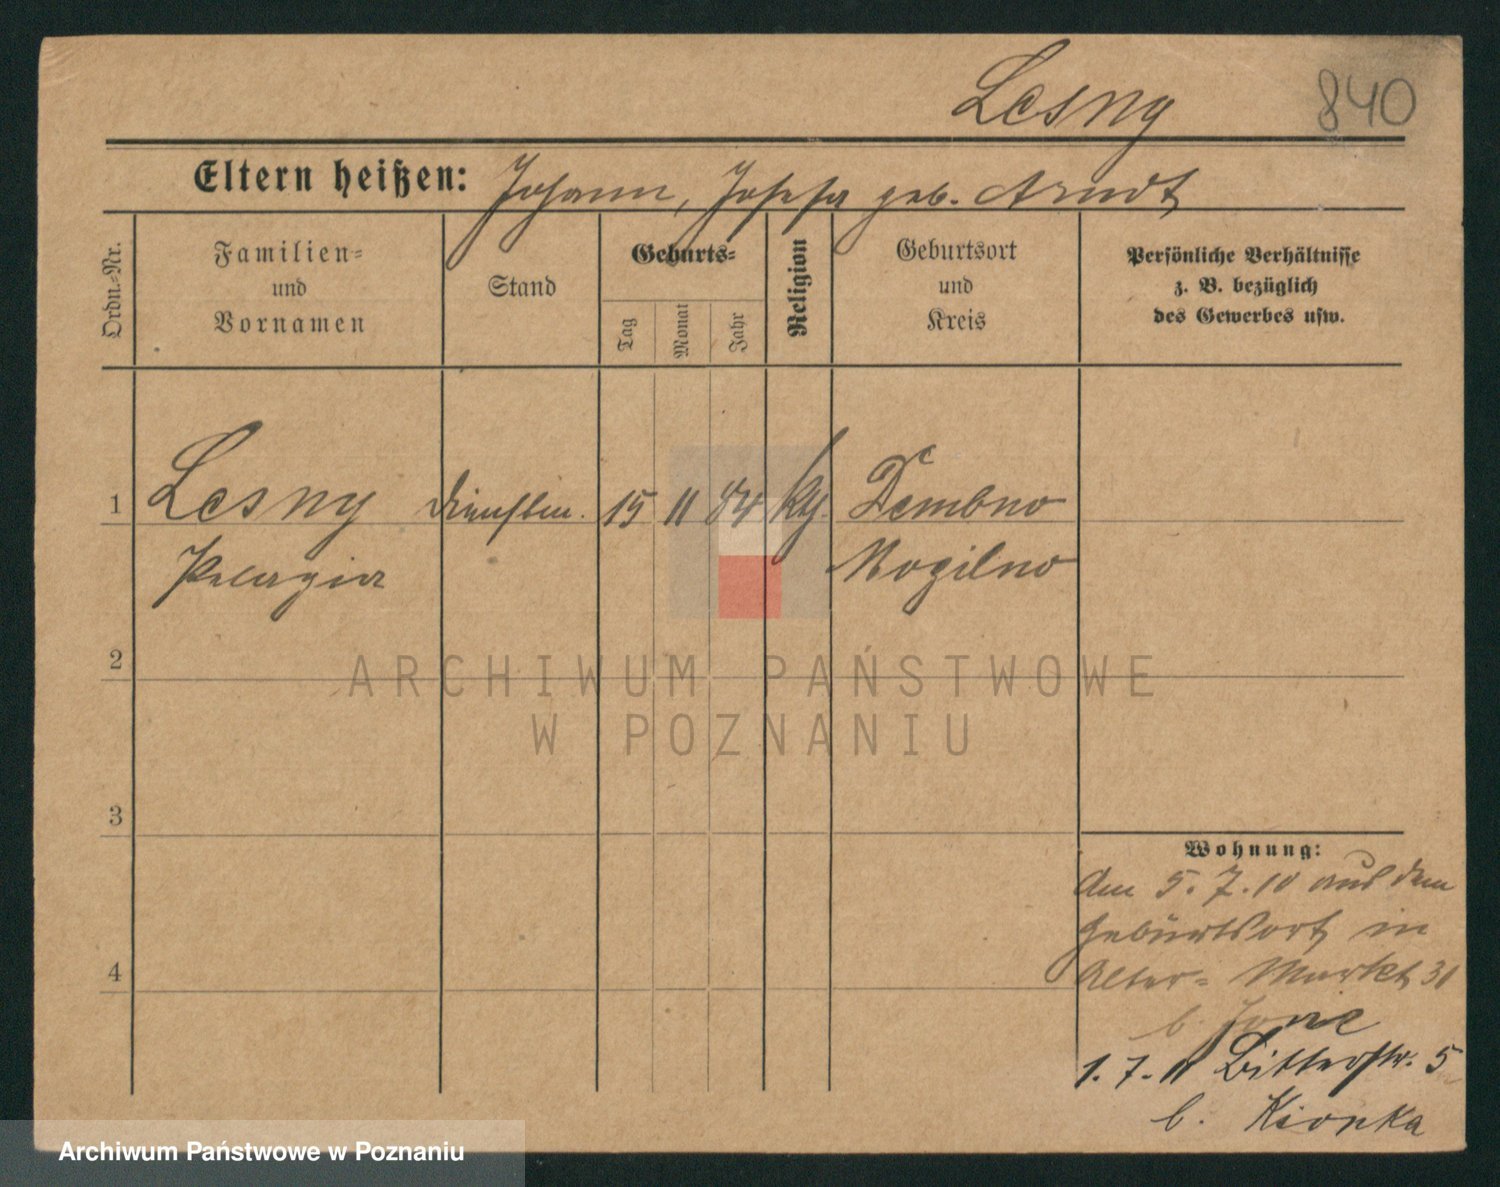 Lesny 840
Eltern heißen: Johann, Josefa geb. Arndt
Ordn.-Nr.
Familien-
und
Vornamen
Stand
Geburts-
Tag
Monat
Jahr
Religion
Geburtsort
und
Kreis
Persönliche Verhältnisse
z. B. bezüglich
des Gewerbes usw.
1 Lesny 15 11 84 kth. Dembno
Pelagia Mogilno
2
ARCHIWUM PAŃSTWOWE
W POZNANIU
3
Wohnung:
Am 5.7.10 aus dem
Geburtsort in
4
Alter-Markt 31
b.
1.7.11 Bitterstr. 5
b. Kionka
Archiwum Państwowe w Poznaniu